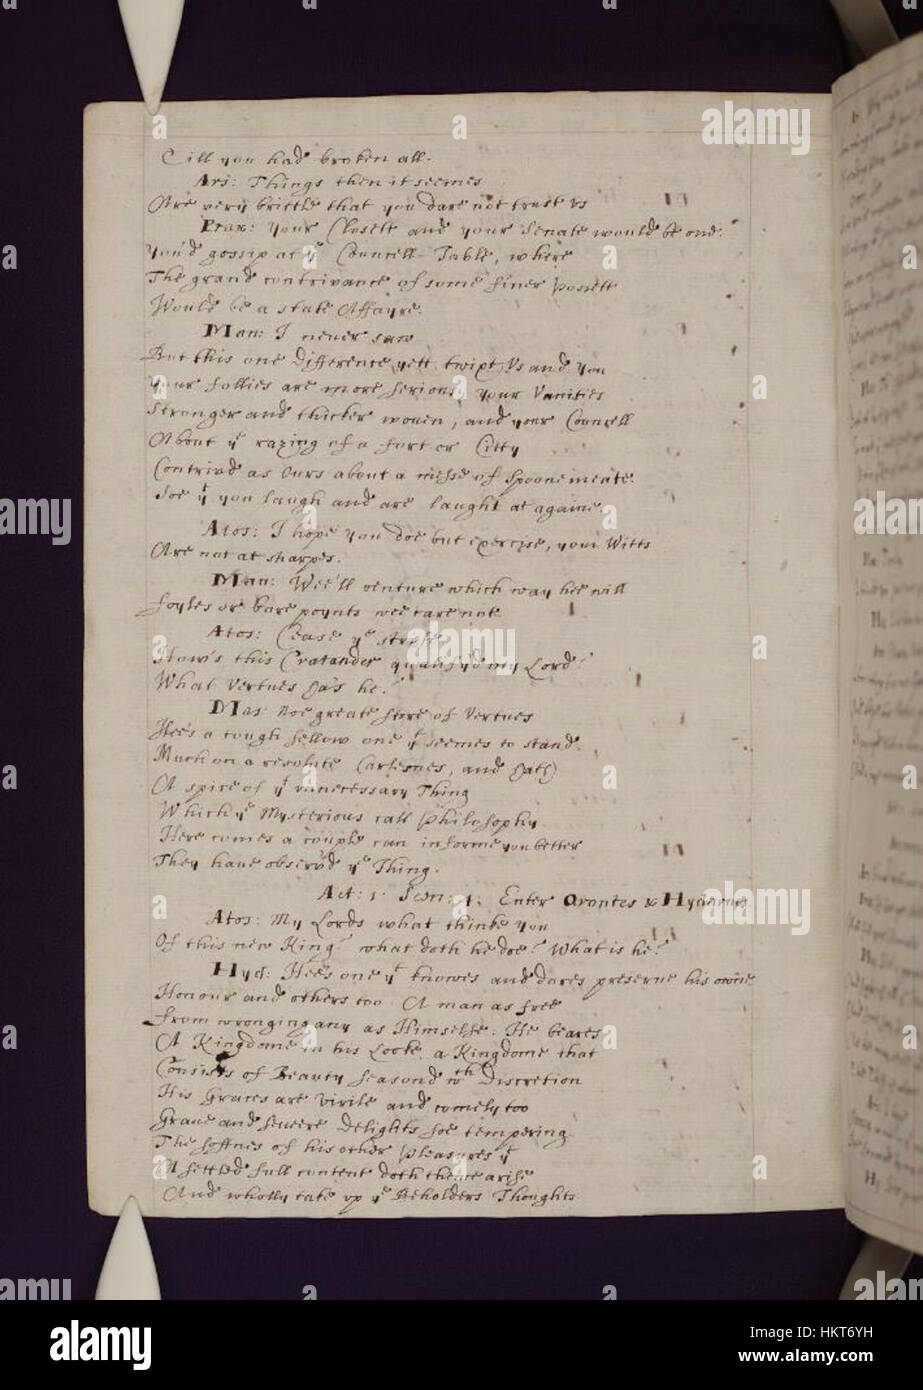 Till you had broken all.
Ars: Things then it seemes
Are very brittle that you dare not trust Vs
Prax: your Closett and your Senate would be one.
You'd gossip at yᵉ Councell-Table, where
The grand contrivance of some finer Possett
Would be a state Affayre.
Man: I never saw
But this one difference yett twixt Vs and you
your follies are more serious, your Vanities
Stronger and thicker woven, and your Councell
About yᵉ razing of a fort or Citty
Contriv'd as Ours about a messe of spoonemeate.
Soe yᵗ you laugh and are laught at againe.
Atos: I hope you doe but exercise, your Witts
Are not at sharpes.
Man: Wee'll venture which way hee will
foyles or bare poynts wee care not.
Atos: Cease yᵉ stryfe
How's this Cratander qualify'd my Lord?
What Vertues has he?
Mas: Noe greate store of Vertues
Hee's a tough fellow one yᵗ seemes to stand
Much on a resolute Carlesnes, and hath
A spice of yᵗ vnnecessary Thing
Which yᵉ Mysterious call Philosophy
Here comes a couple can informe you better
They haue observ'd yᵉ Thing.
Act: 1. Scen: 4. Enter Orontes & Hydarnes
Atos: My Lords what thinke you
Of this new King? what doth he doe? What is he?
Hyd: Hee's one yᵗ knowes and dares preserue his owne
Honour and others too A man as free
From wronging any as Himselfe: He beares
A Kingdome in his Looke, a Kingdome that
Consists of Beauty seasond wᵗʰ Discretion
His Graces are Virile and comely too
Graue and seuere delights soe tempering
The softnes of his other pleasures yᵗ
A settled full content doth thence arise
And wholly take vp yᵉ Beholders Thoughts
alamy
Image ID: HKT6YH
www.alamy.com